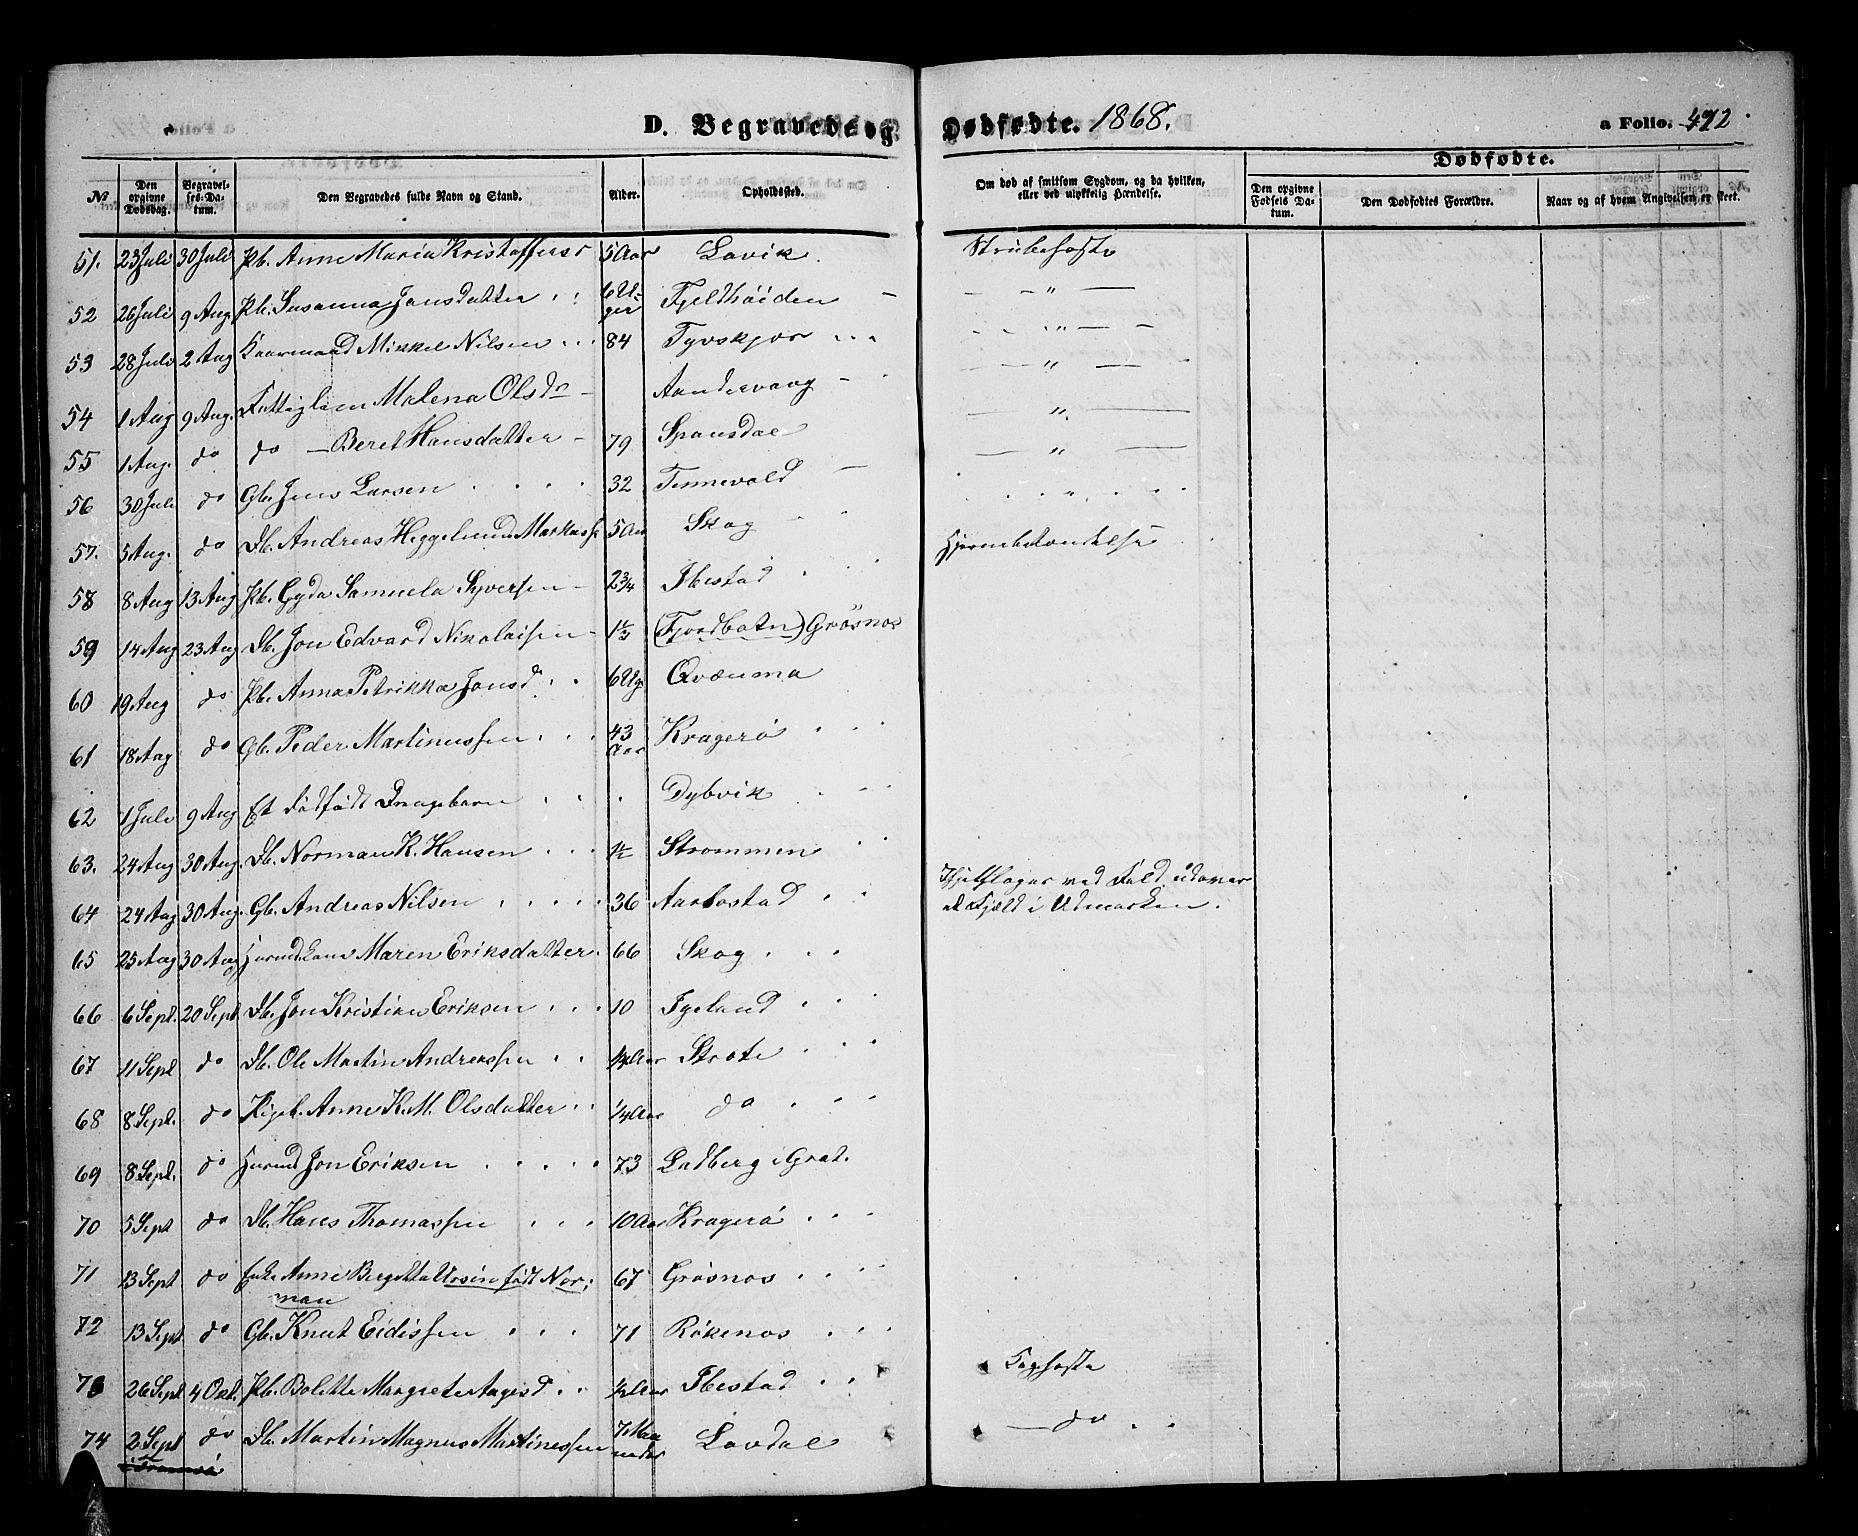 D. Begravede og Dødfødte. 1868. a Folio. 492
№ Den opgivne Dødsdag. Begravelses-Datum. Den Begravedes fulde Navn og Stand. Alder. Opholdssted. Om død af smitsom Sygdom, og da hvilken, eller ved ulykkelig Hændelse. Dødfødte.
Den opgivne Fødsels Datum. Den Dødfødtes Forældre. Naar og af hvem Angivelsen er skeet.
51. 23 Juli 30 Juli Pb. Anne Maria Kristoffersd 5 Aar Lavik. Strubehoste
52 26 Juli 9 Aug Pb. Susanna Jonsdatter 6 Uger Fjeldhøiden — " —
53 28 Juli 2 Aug Kaarmand Mikkel Nilsen 84 Tyvskjær — " —
54 1 Aug 9 Aug. Fattiglem Malena Olsdr Aandervaag — " —
55 1 Aug. do do — Beret Hansdatter 79 Spansdal — " —
56 30 Juli do Gb. Jens Larsen 32 Tennevold — " —
57. 5 Aug. do Db. Andreas Heggelund Markuss 5 Aar Skog
58 8 Aug 13 Aug Pb. Gyda Samuela Syversen 2¾ Ibestad
59 14 Aug 23 Aug Db. Jon Edvard Nikolaisen 1⅓ (Fjordbotn) Grøsnes
60 19 Aug do Pb. Anna Petrikka Jonsd. 6 Ug Qvænma
61 18 Aug do Gb. Peder Martinussen 43 Aar Kragerø
62 1 Juli 9 Aug Et dødfødt Drengebarn Dybvik
63. 24 Aug 30 Aug. Db. Norman K. Hansen 1½ Strømmen
64 24 Aug 30 Aug. Gb. Andreas Nilsen 36 Aarbostad Ihjelslagen ved Fald udover
et Fjeld i Udmarken.
65 25 Aug 30 Aug Maren Eriksdatter 66 Skog
66 6 Sept. 20 Sept Db. Jon Kristian Eriksen 10 Fgeland
67 11 Sept do Db. Ole Martin Andreassen ¼ Aar Strøte
68 8 Sept. do Pigeb. Anne K. M. Olsdatter ¼ Aar do
69 8 Sept. do Jon Eriksen 73 Ladberg i Grat.
70 5 Sept do Db. Hans Thomassen 10 Aar Kragerø
71 13 Sept do Enke Anne Bergitta Ursin født Norman 67 Grøsnes
72 13 Sept do Gb. Knut Eidissen 71 Røkenes
73 26 Sept 4 Okt. Pb. Bolette Margrete Aagesd ½ Aar Ibestad Kighoste
74 2 Sept do Db. Martin Magnus Martinessen 7 Maaneder Lavdal — do